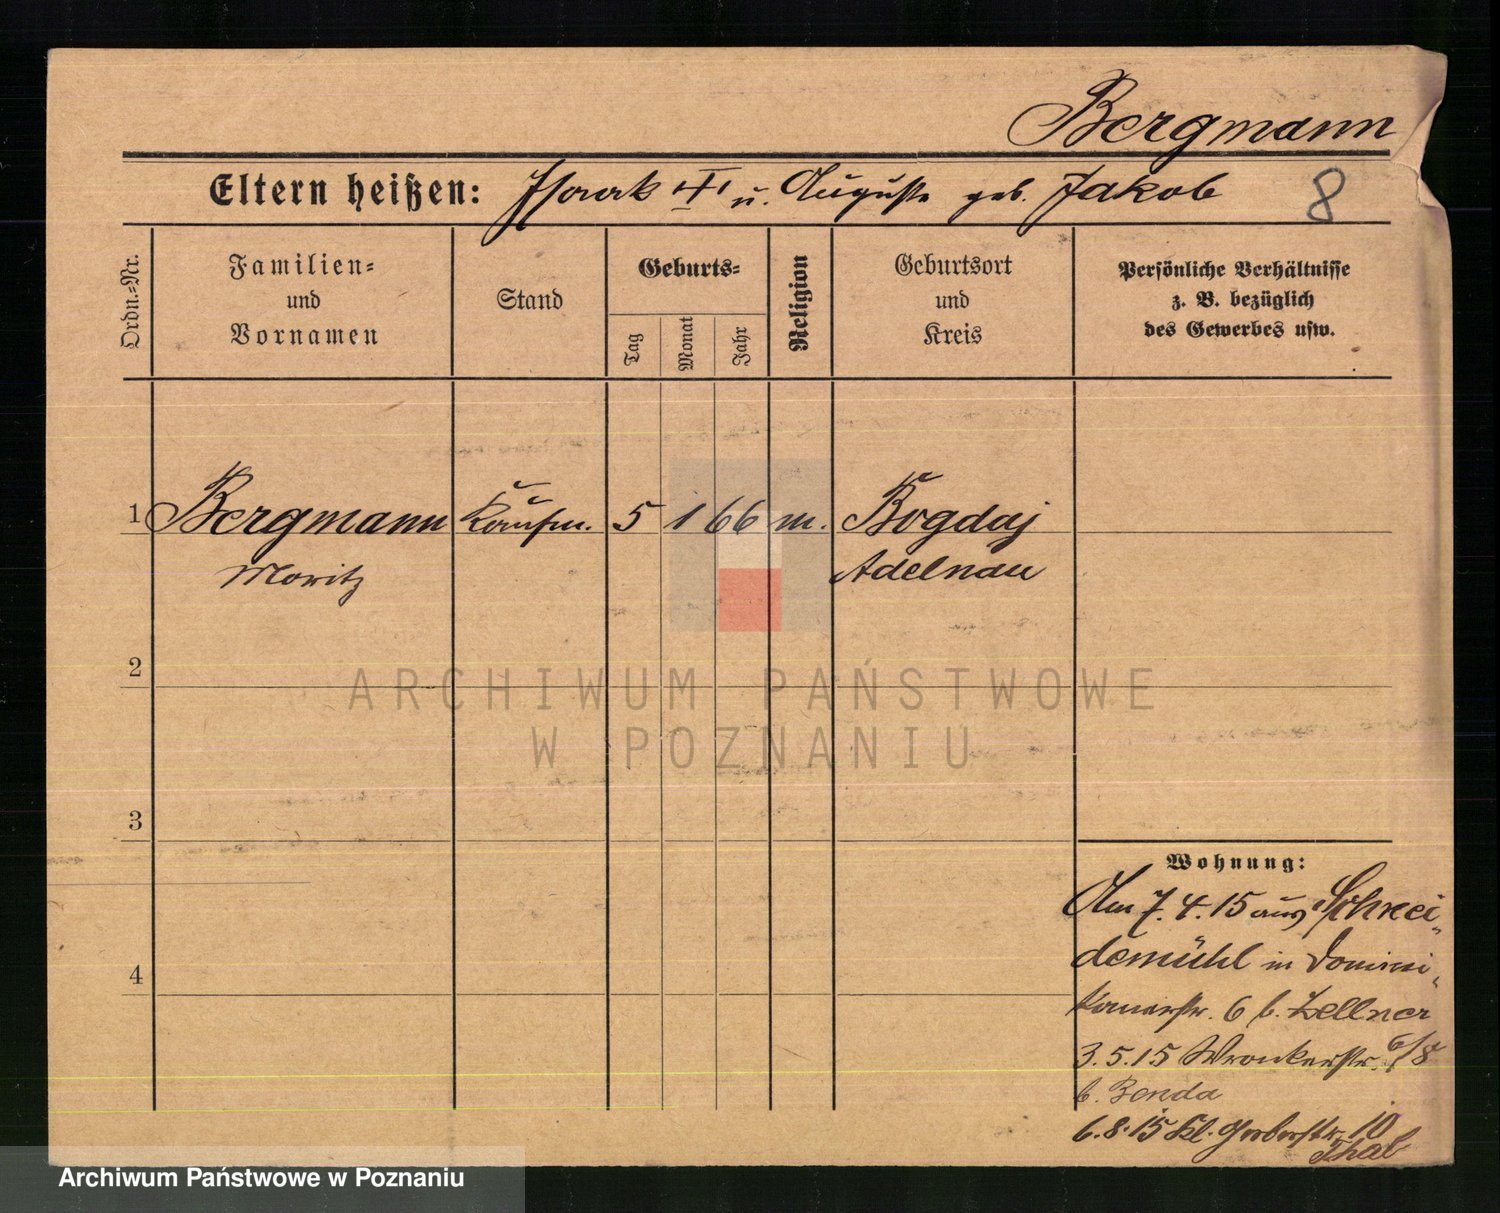 Bergmann
Eltern heißen: Isaak † u. Auguste geb. Jakob 8
Ordn.-Nr.
Familien-
und
Vornamen
Stand
Geburts-
Tag
Monat
Jahr
Religion
Geburtsort
und
Kreis
Persönliche Verhältnisse
z. B. bezüglich
des Gewerbes usw.
1 Bergmann Kaufm. 5 1 66 m. Bogdaj
Moritz Adelnau
2
3
4
Wohnung:
Am 7.4.15 aus Schnei-
demühl in Domini-
kanerstr. 6 b. Zellner
3.5.15 Wronkerstr. 6/8
b. Benda
6.8.15 Kl. Gerberstr. 10
Thal
ARCHIWUM PAŃSTWOWE
W POZNANIU
Archiwum Państwowe w Poznaniu